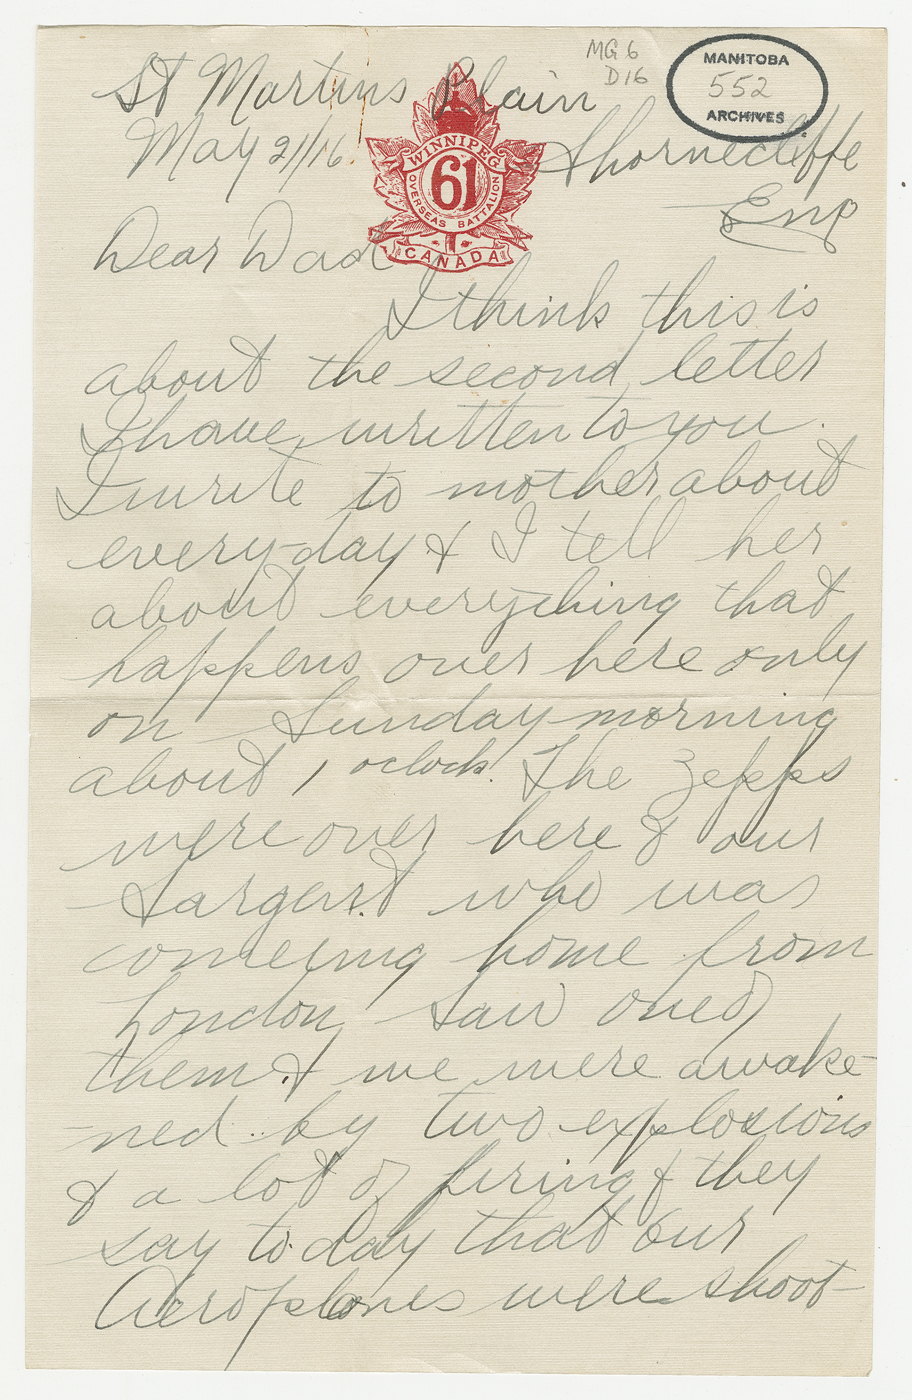 MG6
D16
MANITOBA
552
ARCHIVES
St Martins Plain
May 21/16. Shornecliffe
Eng
WINNIPEG
61
OVERSEAS BATTALION
CANADA
Dear Dad
I think this is
about the second letter
I have written to you.
I write to mother about
every-day & I tell her
about everything that
happens over here only
on Sunday morning
about 1 oclock. The Zepps
were over here & our
Sargent who was
comeing home from
London saw one of
them & we were awake-
ned by two explosions
& a lot of firing & they
say to day that our
Aeroplanes were shoot-